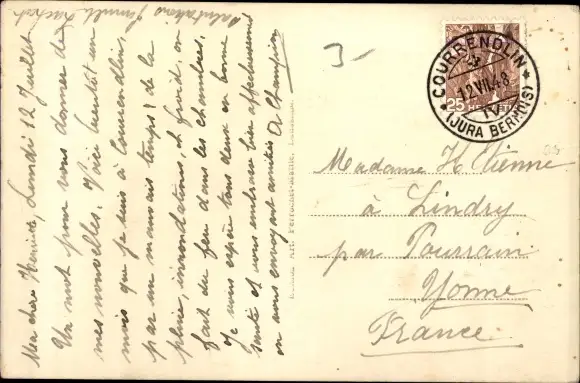 Ma chère Lundi 12 Juillet
Un mot pour vous donner de
mes nouvelles. Voici bientôt un
mois que je suis à Courrendlin,
par un mauvais temps! de la
pluie, innondations, et froid, on
fait du feu dans les chambres.
Je vous espère tous deux en bonne
santé et vous embrasse bien affectueusement
en vous envoyant amitiés A Champion
salutations famille
3-
COURRENDLIN
12.VII.48
IV
(JURA BERNOIS)
25 HELVETIA
Madame H Etienne
à Lindry
par Pourrain
Yonne
France